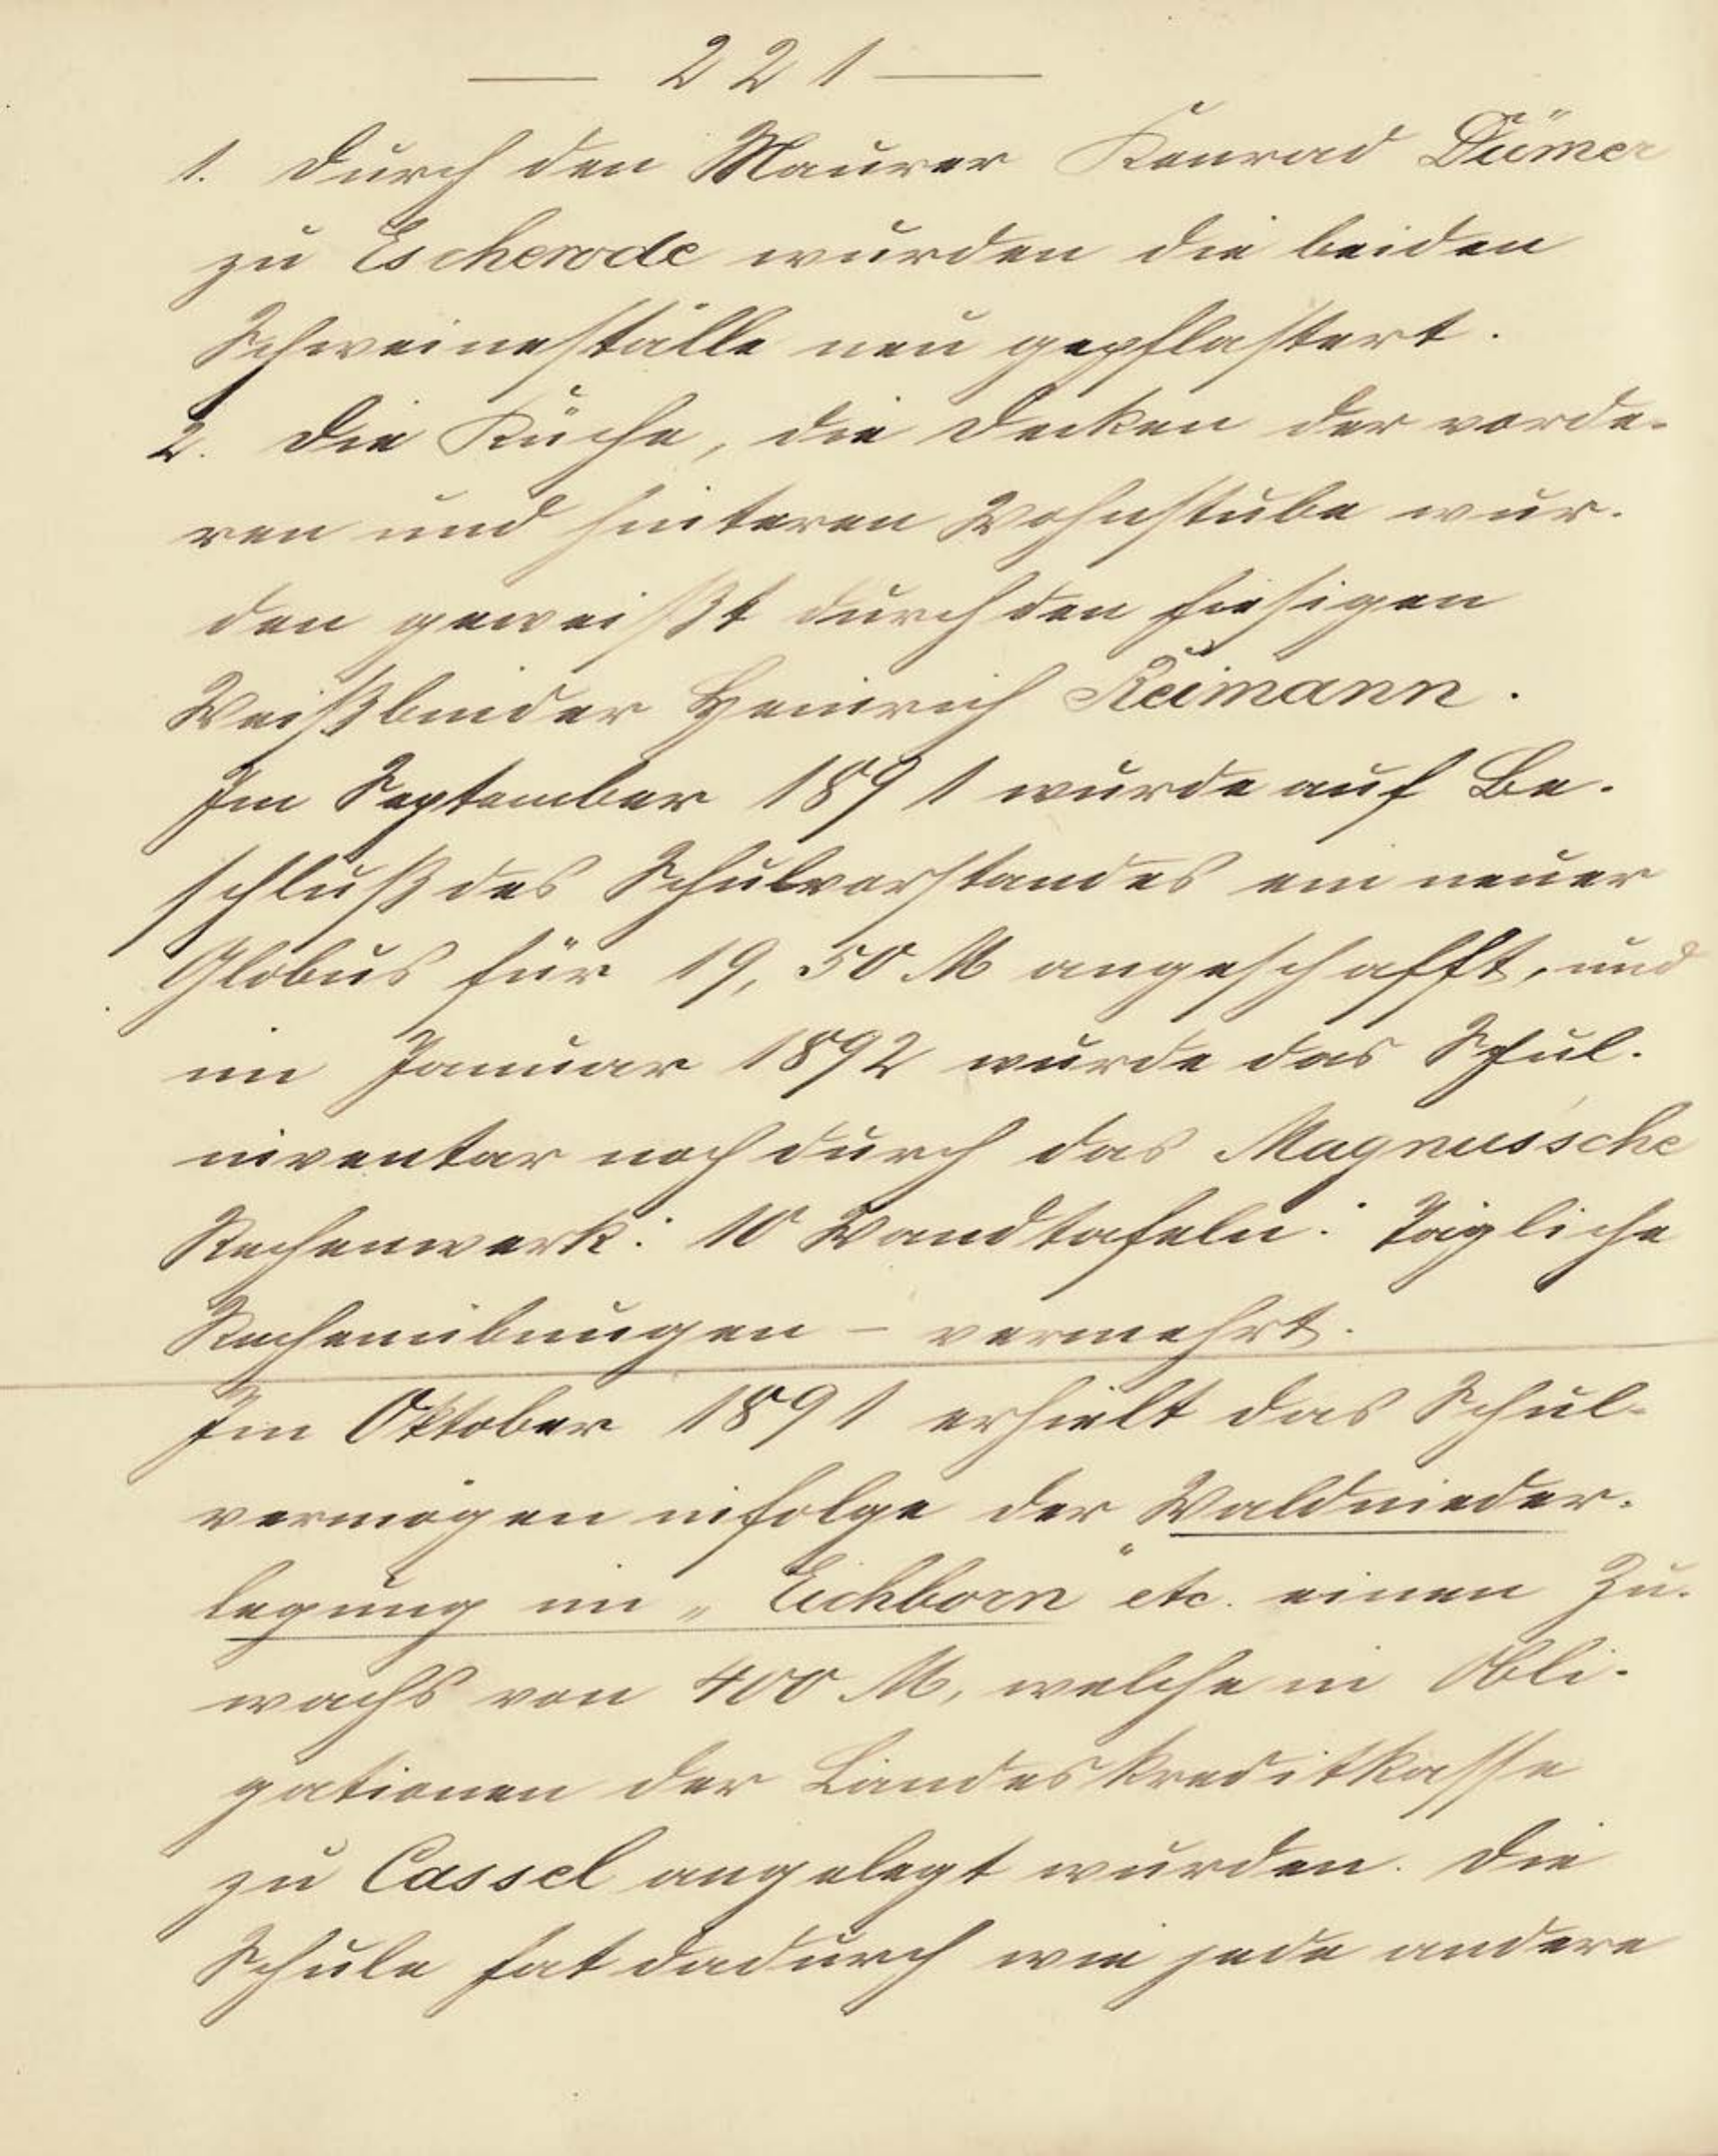 — 221 —
1. Durch den Maurer Konrad Dümer
zu Escherode wurden die beiden
Schweineställe neu gepflastert.
2. Die Küche, die Decken der vorde-
ren und hinteren Wohnstube wur-
den geweißt durch den hiesigen
Weißbinder Heinrich Reimann.
Im September 1891 wurde auf Be-
schluß des Schulvorstandes ein neuer
Globus für 19,50 M angeschafft, und
im Januar 1892 wurde das Schul-
inventar noch durch das Magnus'sche
Rechenwerk: 10 Wandtafeln: Tägliche
Rechenübungen – vermehrt.
Im Oktober 1891 erhielt das Schul-
vermögen infolge der Waldnieder-
legung im „Eichborn" etc. einen Zu-
wachs von 400 M, welche in Obli-
gationen der Landeskreditkasse
zu Cassel angelegt wurden. Die
Schule hat dadurch wie jede andere